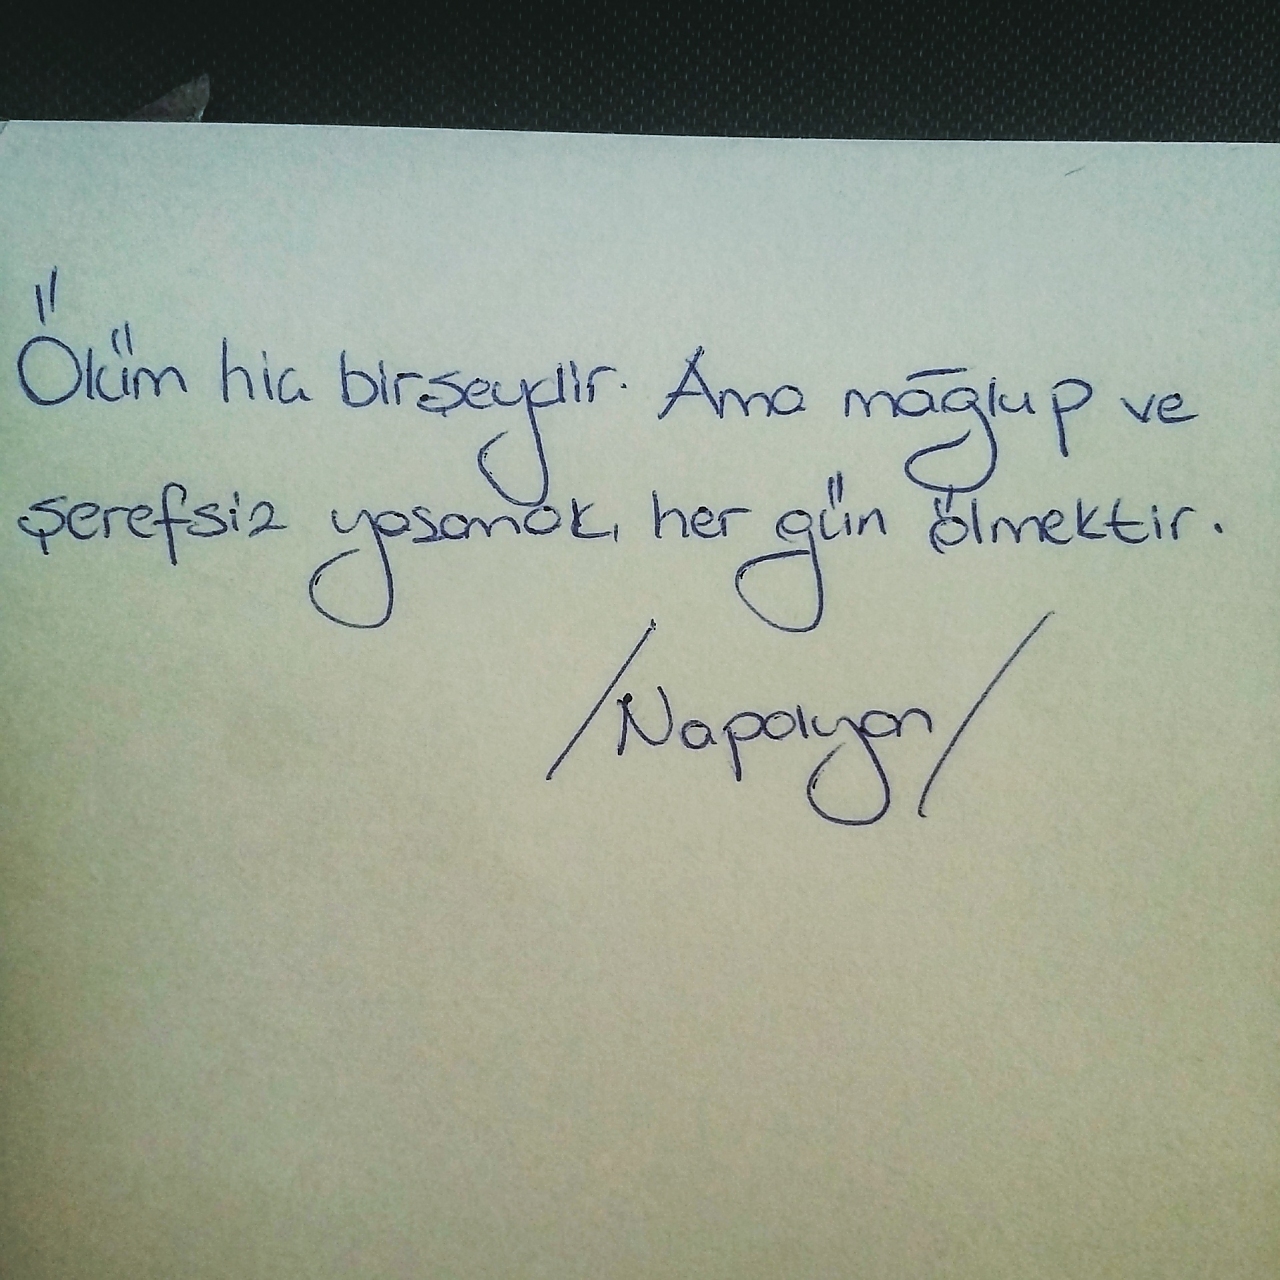 Ölüm hiç birşeydir. Ama mağlup ve
şerefsiz yaşamak, her gün ölmektir.
/Napolyon/